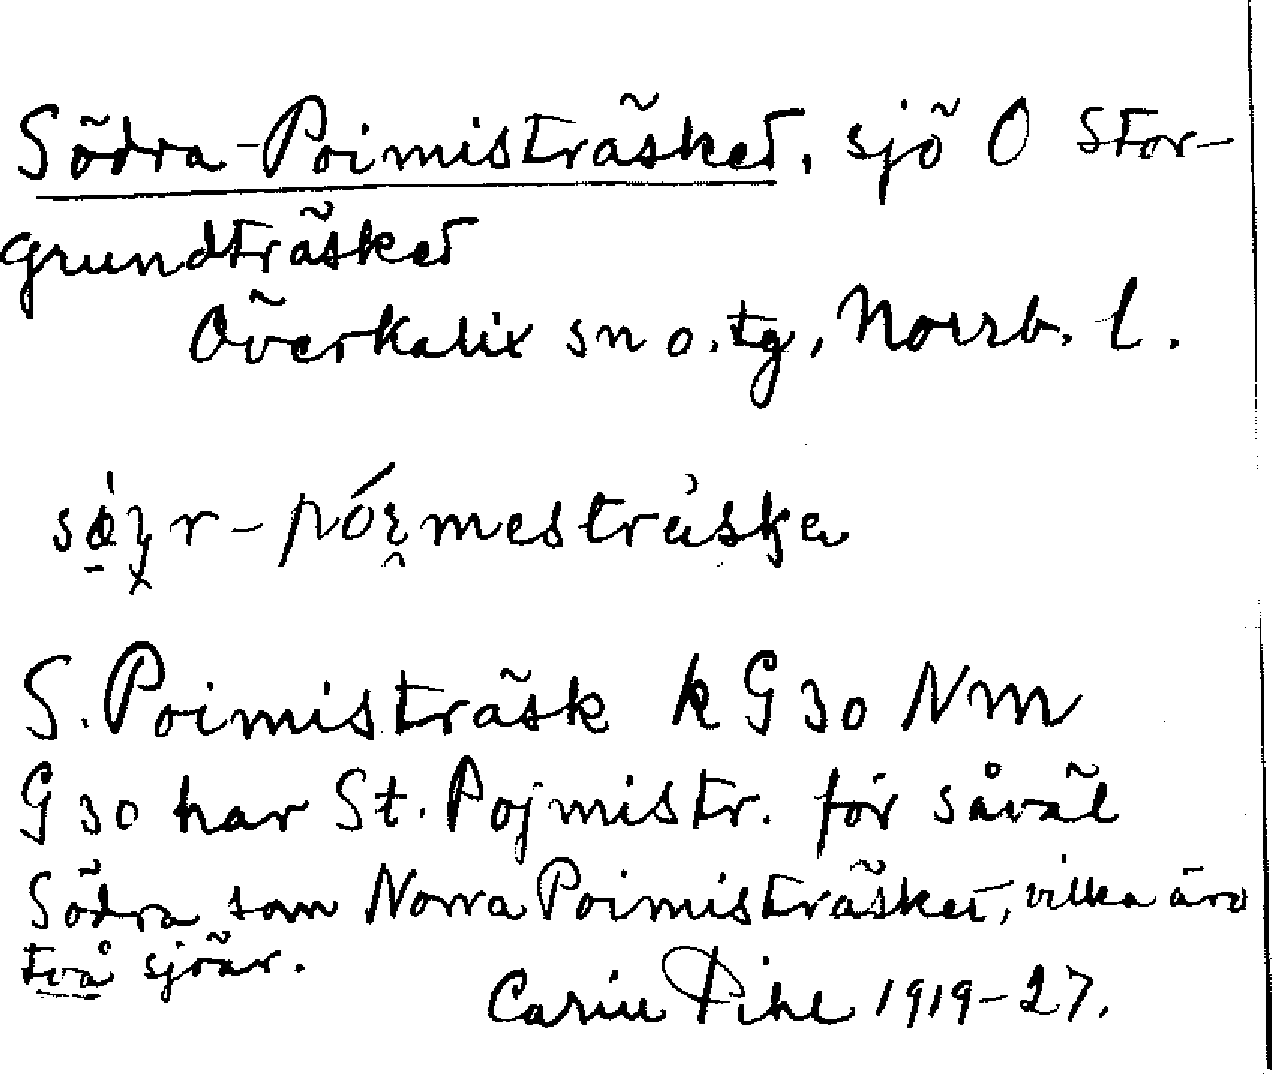 Södra-Poimisträsket, sjö O Stor-
grundträsket
Överkalix sn o. tg, Norrb. l.
S. Poimisträsk k G 30 NM
G 30 har St. Pojmistr. för såväl
Södra som Norra Poimisträsket, vilka äro
två sjöar.
Carin Pihl 1919-27.